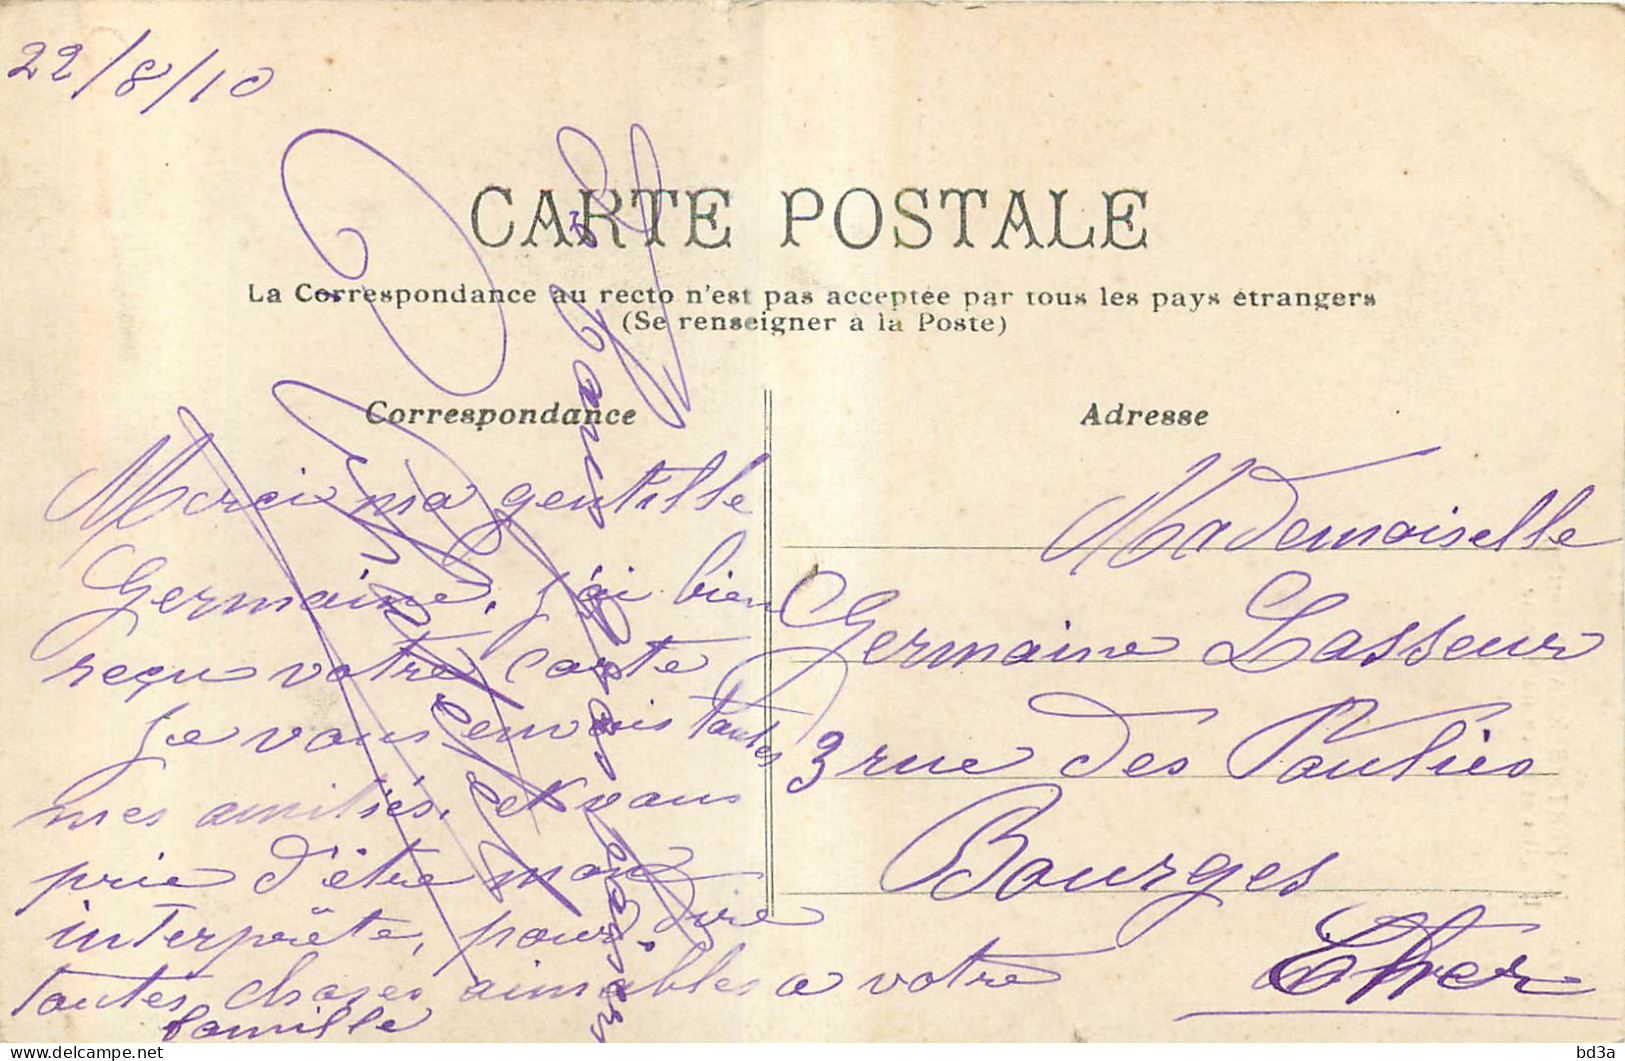 22/8/10
CARTE POSTALE
La Correspondance au recto n'est pas acceptée par tous les pays étrangers
(Se renseigner à la Poste)
Correspondance
Merci ma gentille
Germaine, j'ai bien
reçu votre carte
Je vous envois toutes
mes amitiés, et vous
prie d'être mon
interprète, pour dire
toutes choses aimables a votre
famille
baisers
Adresse
Mademoiselle
Germaine Lasseur
3 rue des Poulies
Bourges
Cher
bd3a